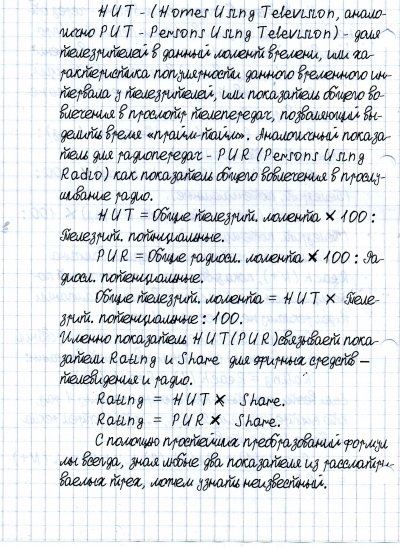 HUT - (Homes Using Television, анало-
гично PUT - Persons Using Television) - доля
телезрителей в данный момент времени, или ха-
рактеристика популярности данного временного ин-
тервала у телезрителей, или показатель общего во-
влечения в просмотр телепередач, позволяющий вы-
делить время «прайм-тайм». Аналогичный показа-
тель для радиопередач - PUR (Persons Using
Radio) как показатель общего вовлечения в прослу-
шивание радио.
HUT = Общие телезрит. момента × 100 :
Телезрит. потенциальные.
PUR = Общие радиосл. момента × 100 : Ра-
диосл. потенциальные.
Общие телезрит. момента = HUT × Теле-
зрит. потенциальные : 100.
Именно показатель HUT (PUR) связывает пока-
затели Rating и Share для эфирных средств –
телевидения и радио.
Rating = HUT × Share.
Rating = PUR × Share.
С помощью простейших преобразований форму-
лы всегда, зная любые два показателя из рассматри-
ваемых трех, можем узнать неизвестный.